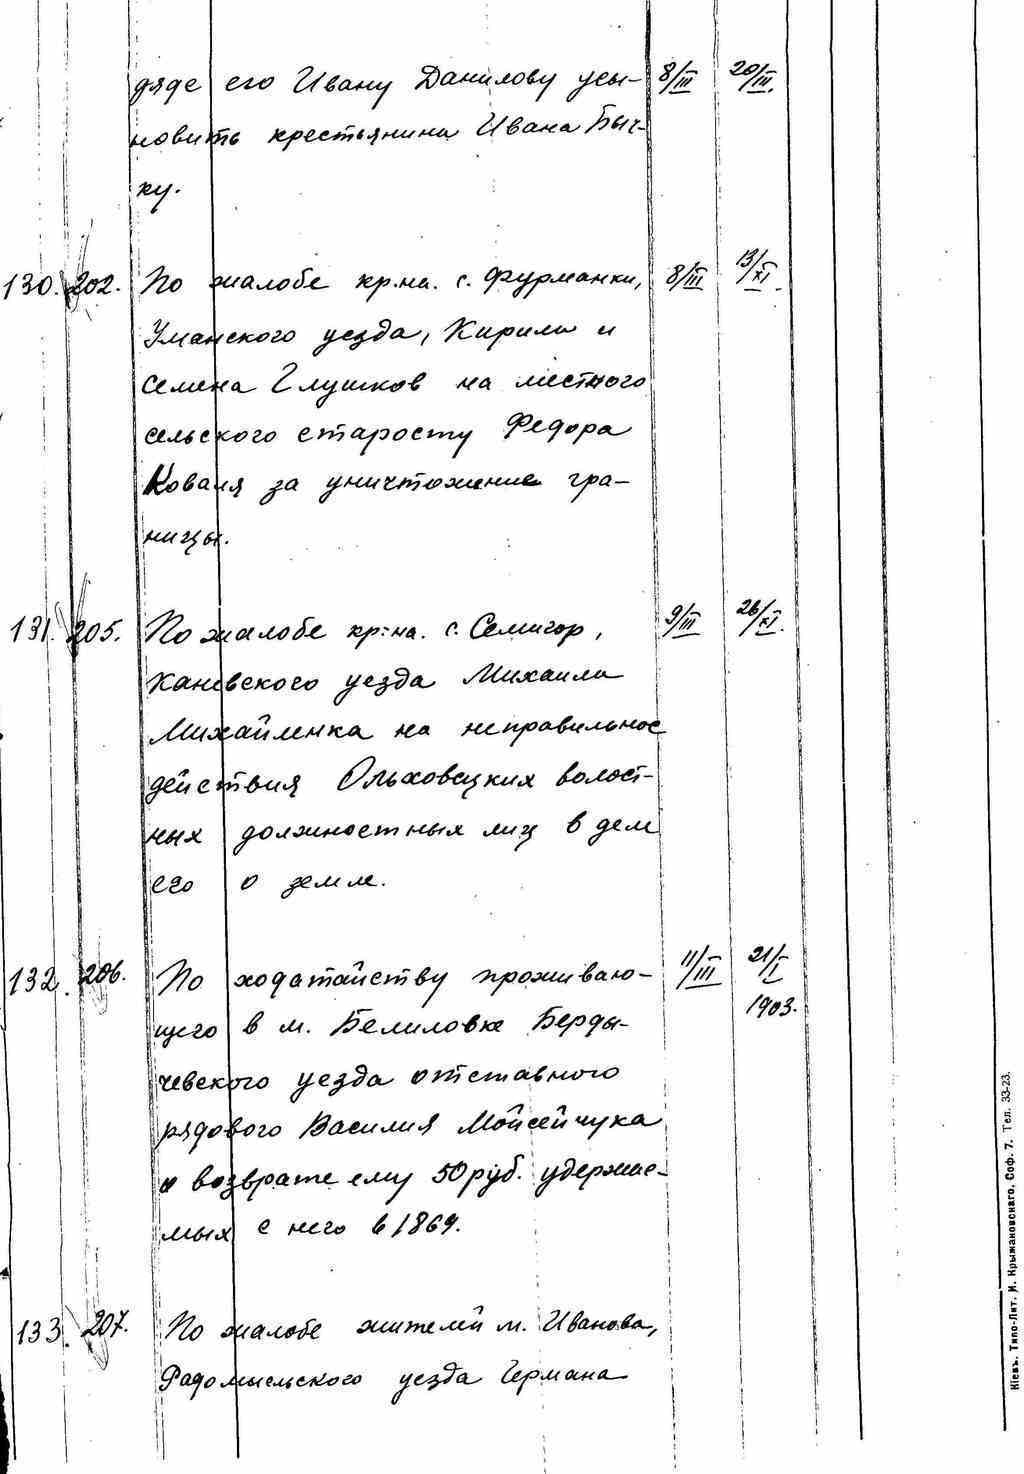 дяде его Ивану Данилову усы- 8/III 20/III.
новить крестьянина Ивана Быч-
ку.
130. 202. По жалобе кр.на. с. Фурманки, 8/III 13/XI.
Уманского уезда, Кирила и
Семена Глушков на местного
сельского старосту Федора
Коваля за уничтожение гра-
ницы.
131. 205. По жалобе кр-на. с. Семигор, 9/III 26/XI.
Каневского уезда Михаила
Михайленка на неправильное
действия Ольховецких волост-
ных должностных лиц в деле
его о земле.
132. 206. По ходатайству проживаю- 11/III 21/I
1903.
щего в м. Белиловке Берды-
чевского уезда отставного
рядового Василия Мойсейчука
о возврате ему 50 руб. удержае-
мых с него в 1869.
133. 207. По жалобе жителей м. Иванова,
Радомысльского уезда Германа
Кіевъ. Типо-Лит. И. Крыжановскаго, Соф. 7. Тел. 33-23.